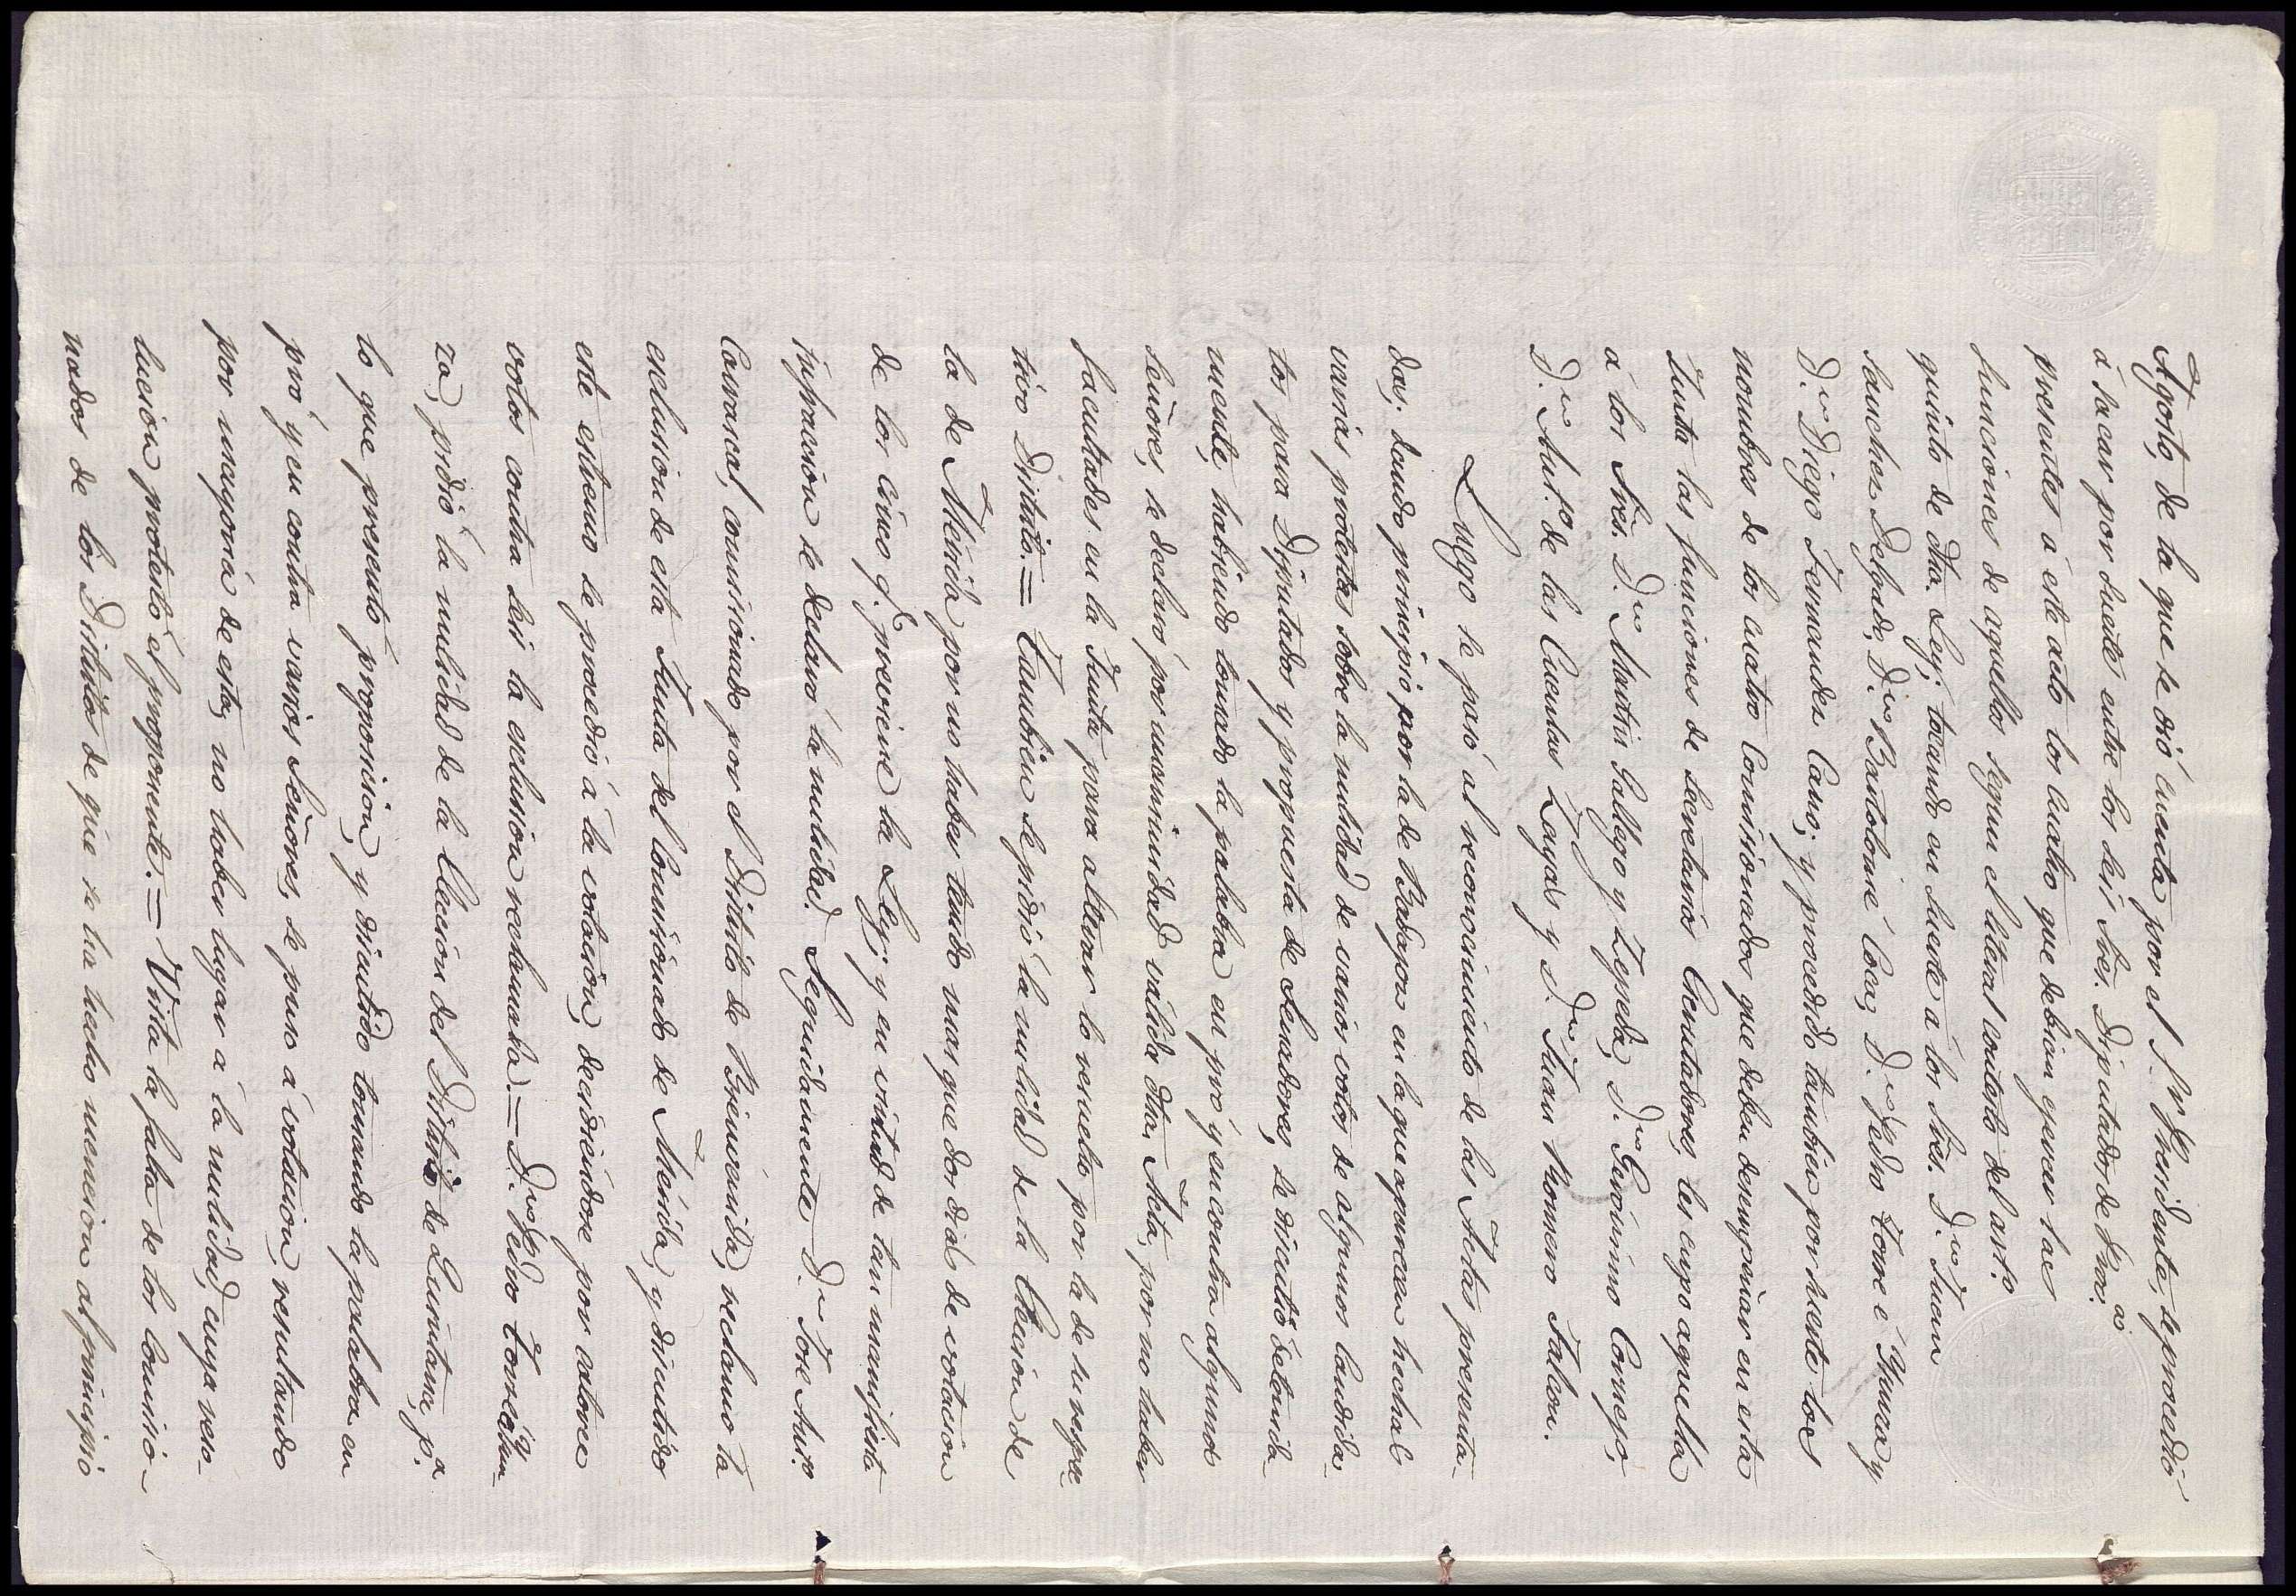 Agosto, de la que se dió cuenta por el Sr. Presidente, se procedió
á sacar por suerte entre los seis Sres. Diputados de Proas.
presentes á este acto los cuatro que debian ejercer las
funciones de aquellos segun el literal contexto del arto.
quinto de dha. Ley; tocando en suerte á los Sres. Dn. Juan
Sanchez Delgado, Dn. Bartolomé Coca, Dn. Pedro Torre é Ysunza y
Dn. Diego Fernandez Cano; y procedido tambien por suerte los
nombres de los cuatro Comisionados que deben desempeñar en esta
Junta las funciones de Secretarios Escrutadores, les cupo aquella
á los Sres. Dn. Martin Gallego y Zepeda, Dn. Gerónimo Cornejo,
Dn. Anto. de las Cuentas Zayas y Dn. Juan Romero Falcon.
Luego se pasó al reconocimiento de las Actas presenta-
das; dando principio por la de Badajoz en la que aparecen hechas
varias protestas sobre la nulidad de varios votos de algunos Candida-
tos para Diputados y propuesta de Senadores, se discutió detenida-
mente, habiendo tomado la palabra en pró y en contra algunos
Señores, se declaró por unanimidad válida dha. Acta, por no haber
facultades en la Junta para alterar lo resuelto por la de su respec-
tivo Distrito.= Tambien se pidió la nulidad de la Eleccion de
la de Mérida por no haber tenido mas que dos dias de votacion
de los cinco q.e previene la Ley; y en virtud de tan manifiesta
infraccion se declaró la nulidad. Seguidamente Dn. Jose Anto.
Carrascal, comisionado por el Distrito de Bienvenida, reclamo la
esclusion de esta Junta del Comisionado de Mérida, y discutido
este estremo se procedió á la votacion, decidiendose por catorce
votos contra seis la esclusion reclamada.= Dn. Pedro Torre é Ysun-
za, pidió la nulidad de la Eleccion del Distrito de Quintana, pa.
lo que presentó proposicion, y discutido tomando la palabra en
pró y en contra varios Señores, se puso á votacion, resultando
por mayoria de esta, no haber lugar á la nulidad, cuya reso-
lucion protestó el proponente.= Vista la falta de los Comisio-
nados de los Distritos de que se ha hecho mencion al principio